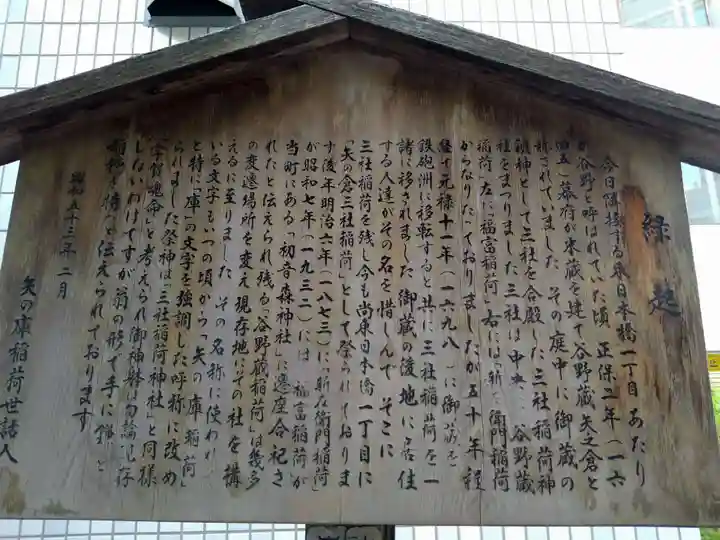 縁起
今日隣接する東日本橋一丁目あたり
谷野と呼ばれていた頃 正保二年(一六
四五)幕府が米蔵を建て谷野蔵 矢之倉と
称されていました その庭中に御蔵の
鎮神として三社を合殿した三社稲荷神
社をまつりました 三社は中央に 谷野蔵
稲荷 左に「福富稲荷」右には「新左衛門稲荷
からなりたっておりましたが五十年程
元禄十一年(一六九八)に御蔵を
鉄砲洲に移転すると共に三社稲荷を一
諸に移されました 御蔵の後地に居住
する人達がその名を惜しんで そこに
三社稲荷を残し今も尚東日本橋一丁目に
「矢の倉三社稲荷」として祭られておりま
す 後年明治六年(一八七三)に「新左衛門稲荷」
が昭和七年(一九三二)には 福富稲荷が
当町にある「初音森神社」に遷座合祀さ
れたと伝えられ残る「谷野蔵稲荷」は幾多
の変遷場所を変え現存地にその社を構
えるに至りました その名称に使われ
いる文字もいつの頃から「矢の庫稲荷」
と特に「庫」の文字を強調した呼称に改め
られました 祭神は「三社稲荷神社」と同様
「宇賀魂命」と考えられ御神体は勿論現存
しないわけですが翁の形で手に鎌と
稲穂を持つと伝えられております
昭和五十三年二月
矢の庫稲荷世話人